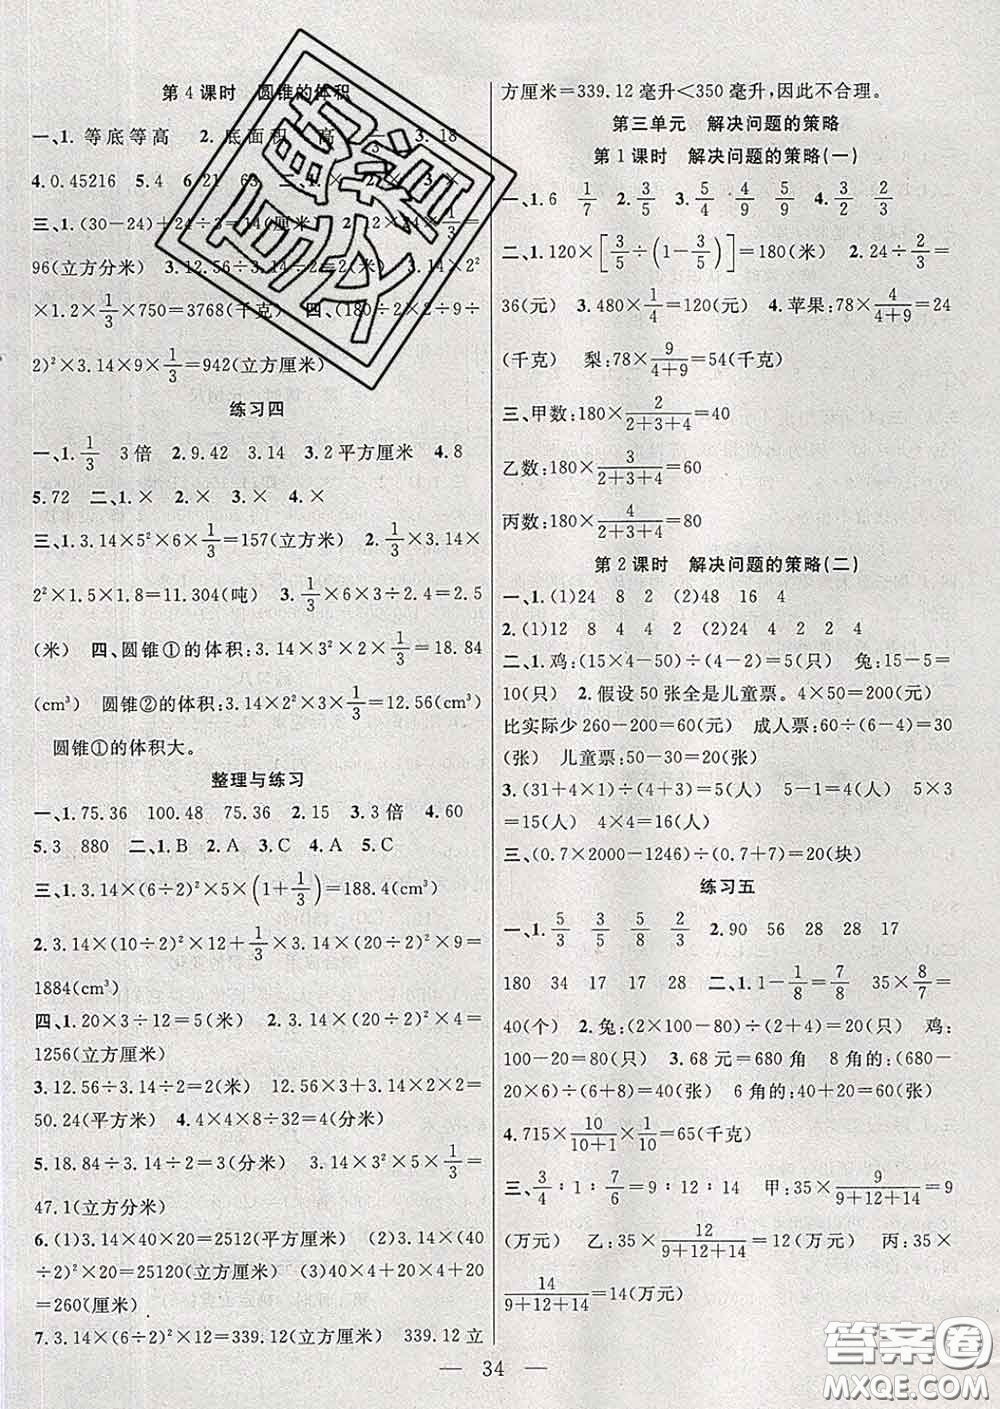 第4课时 圆锥的体积
一、1. 等底等高 2. 底面积 高 3. 18
4. 0.45216 5. 4 6. 21 63 二、
三、1. (30-24)+24÷3=14(厘米) 2. 12×24×1/3=
96(立方分米) 3. 12.56÷3.14÷2=2(米) 3.14×2²
×1.2×1/3×750=3768(千克) 四、(180÷2×2÷9÷
2)²×3.14×9×1/3=942(立方厘米)
练习四
一、1. 1/3 3倍 2. 9.42 3.14 3. 2平方厘米 4. 8
5. 72 二、1. × 2. × 3. × 4. ×
三、1. 3.14×5²×6×1/3=157(立方米) 2. 1/3×3.14×
2²×1.5×1.8=11.304(吨) 3. 1/3×6×3÷2.4=2.5
(米) 四、圆锥①的体积:3.14×3²×2×1/3=18.84
(cm³) 圆锥②的体积:3.14×2²×3×1/3=12.56(cm³)
圆锥①的体积大。
整理与练习
一、1. 75.36 100.48 75.36 2. 15 3. 3倍 4. 60
5. 3 880 二、1. B 2. A 3. C 4. A 5. C
三、1. 3.14×(6÷2)²×5×(1+1/3)=188.4(cm³)
2. 3.14×(10÷2)²×12+1/3×3.14×(20÷2)²×9=
1884(cm³)
四、1. 20×3÷12=5(米) 2. 3.14×(20÷2)²×4=
1256(立方厘米)
3. 12.56÷3.14÷2=2(米) 12.56×3+3.14×2²=
50.24(平方米) 4. 4×4×8÷32=4(分米)
5. 18.84÷3.14÷2=3(分米) 3.14×3²×5×1/3=
47.1(立方分米)
6. (1)3.14×40×20=2512(平方厘米) (2)3.14×(40
÷2)²×20=25120(立方厘米) (3)40×4+20×4+20=
260(厘米)
7. 3.14×(6÷2)²×12=339.12(立方厘米) 339.12立
方厘米=339.12毫升<350毫升,因此不合理。
第三单元 解决问题的策略
第1课时 解决问题的策略(一)
一、1. 6 1/7 2. 3/5 3/5 3. 5/4 4/9 5/9 4. 3/2 2/3
二、1. 120×[3/5÷(1-3/5)]=180(米) 2. 24÷2/3=
36(元) 3. 480×1/4=120(元) 4. 苹果:78×4/(4+9)=24
(千克) 梨:78×9/(4+9)=54(千克)
三、甲数:180×2/(2+3+4)=40
乙数:180×3/(2+3+4)=60
丙数:180×4/(2+3+4)=80
第2课时 解决问题的策略(二)
一、1. (1)24 8 2 (2)48 16 4
2. (1)12 8 4 4 2 (2)24 4 2 2 4
二、1. 鸡:(15×4-50)÷(4-2)=5(只) 兔:15-5=
10(只) 2. 假设50张全是儿童票。4×50=200(元)
比实际少260-200=60(元) 成人票:60÷(6-4)=30
(张) 儿童票:50-30=20(张)
3. (31+4×1)÷(4+3)=5(人) 5-1=4(人) 5×3
=15(人) 4×4=16(人)
三、(0.7×2000-1246)÷(0.7+7)=20(块)
练习五
一、1. 5/3 3/5 5/8 2/3 2. 90 56 28 28 17
180 34 17 17 28 二、1. 1-1/8=7/8 35×8/7=
40(个) 2. 兔:(2×100-80)÷(2+4)=20(只) 鸡:
100-20=80(只) 3. 68元=680角 8角的:(680-
20×6)÷(6+8)=40(张) 6角的:40+20=60(张)
4. 715×10/(10+1)×1/10=65(千克)
三、3/4∶1∶7/6=9∶12∶14 甲:35×9/(9+12+14)=9
(万元) 乙:35×12/(9+12+14)=12(万元) 丙:35×
14/(9+12+14)=14(万元)
34
答案圈
MXQE.COM